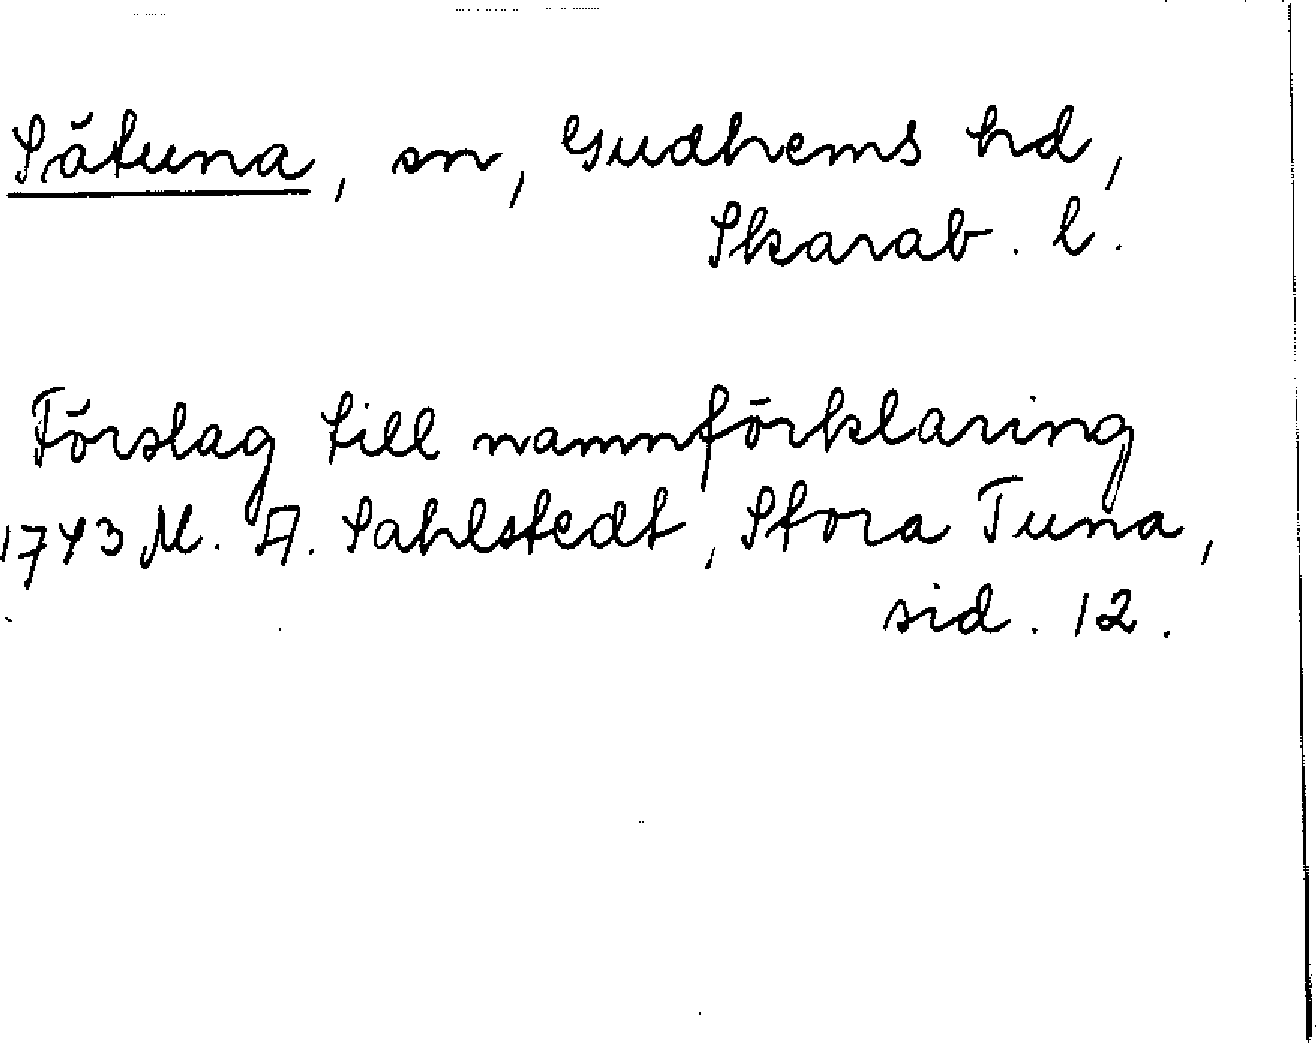 Sätuna, sn, Gudhems hd,
Skarab. l.
Förslag till namnförklaring
1743 M. A. Sahlstedt, Stora Tuna,
sid. 12.